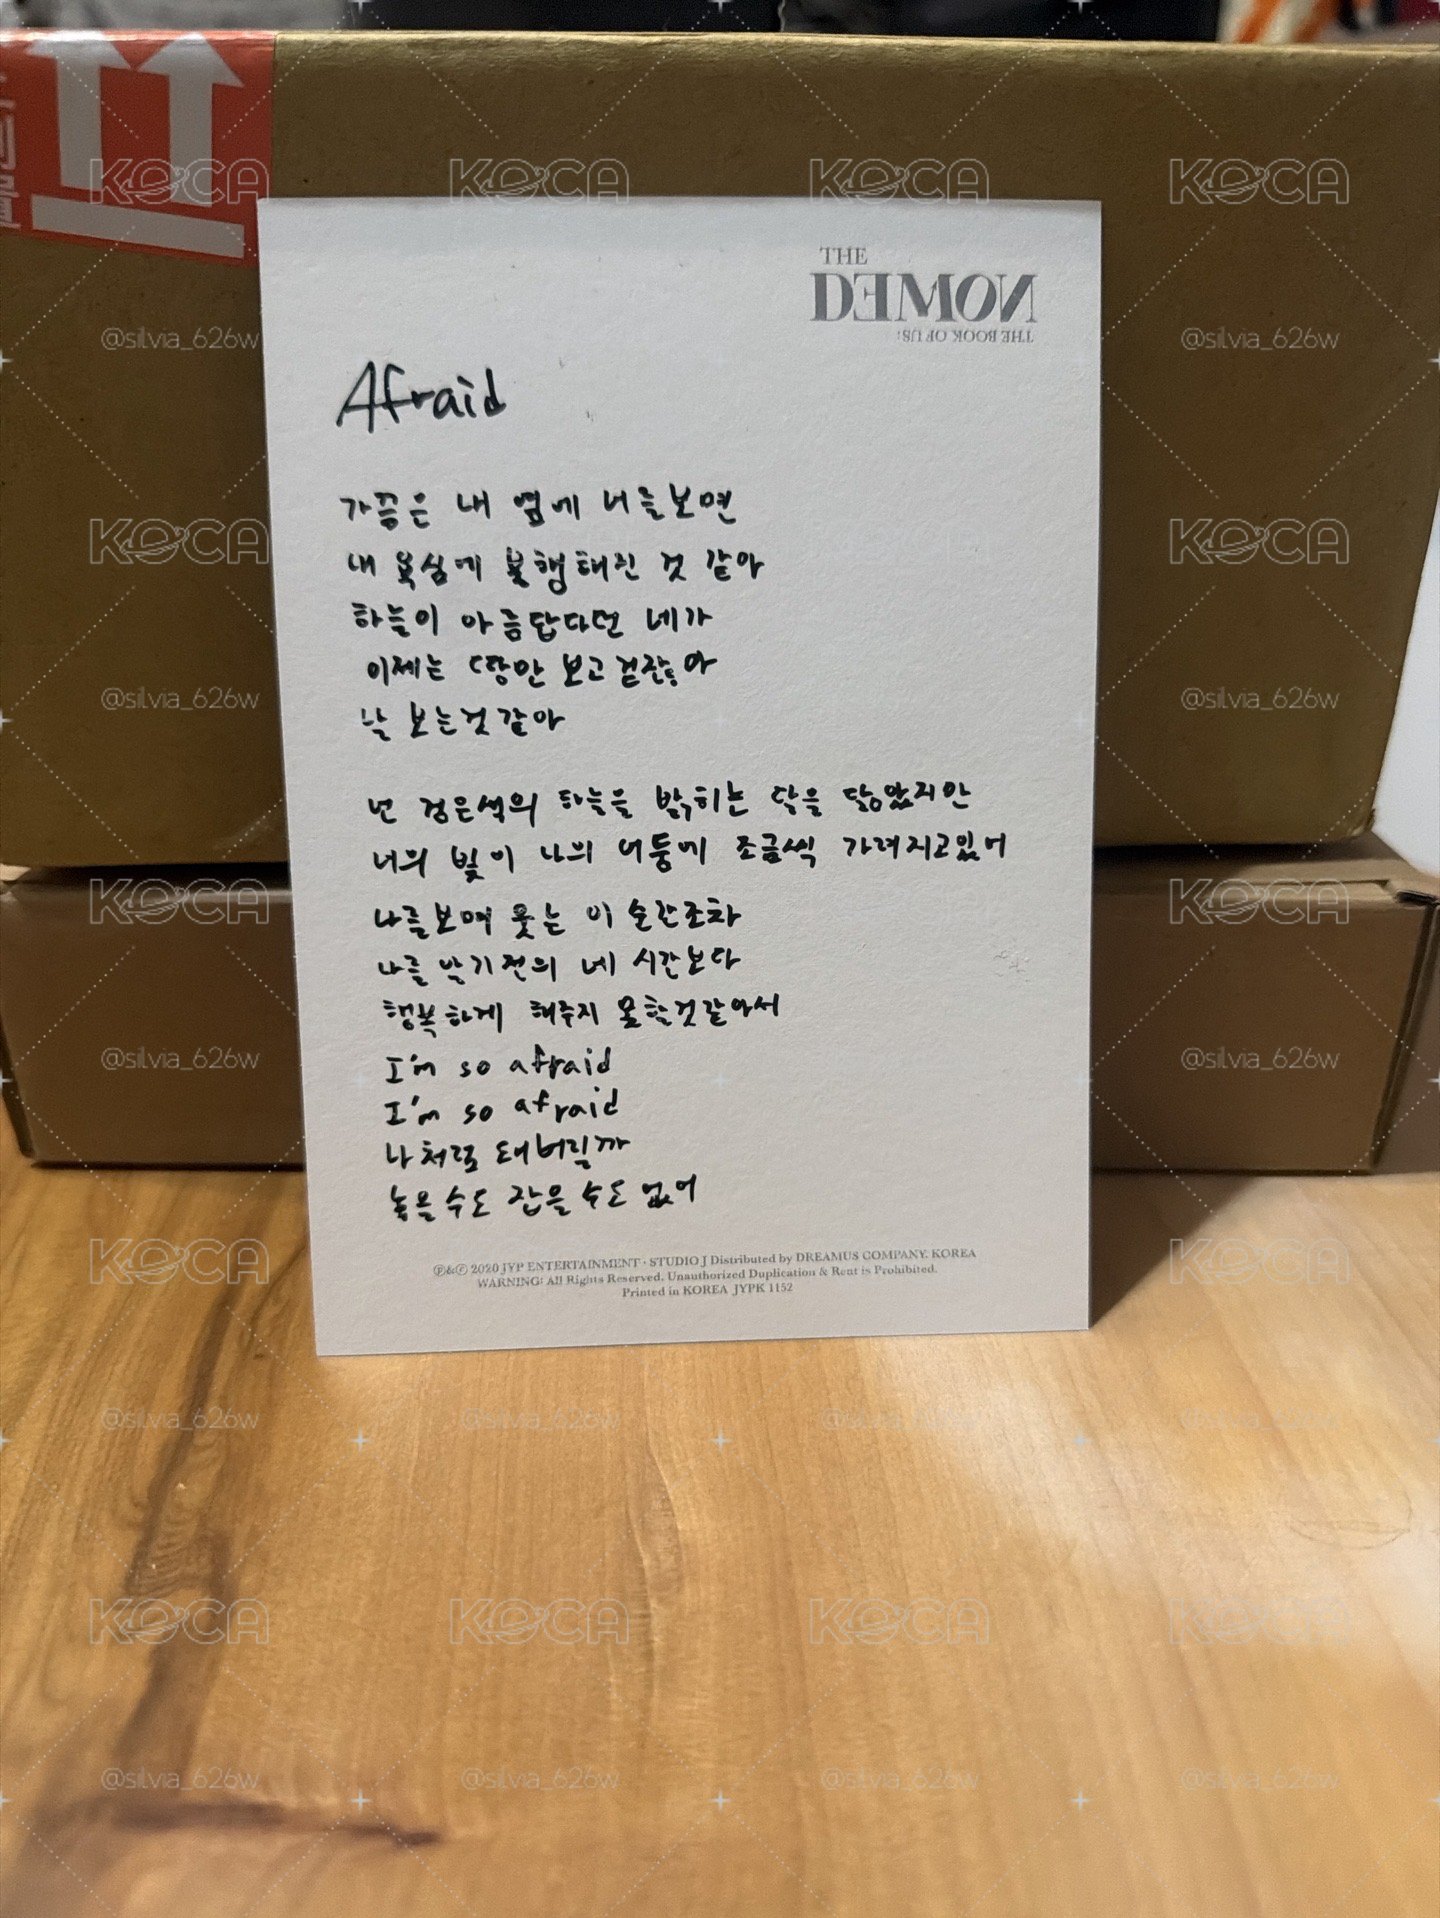 THE
DEMON
THE BOOK OF US:
Afraid
가끔은 내 옆에 너를 보면
내 욕심에 불행해진 것 같아
하늘이 아름답다던 네가
이제는 땅만 보고 걷잖아
날 보는것 같아
넌 검은색의 하늘을 밝히는 달을 닮았지만
너의 빛이 나의 어둠에 조금씩 가려지고있어
나를보며 웃는 이 순간조차
나를 만기전의 네 시간보다
행복하게 해주지 못할것같아서
I'm so afraid
I'm so afraid
나처럼 돼버릴까
놓을수도 잡을수도 없어
℗&© 2020 JYP ENTERTAINMENT · STUDIO J Distributed by DREAMUS COMPANY. KOREA
WARNING: All Rights Reserved. Unauthorized Duplication & Rent is Prohibited.
Printed in KOREA JYPK 1152
KOCA
@silvia_626w